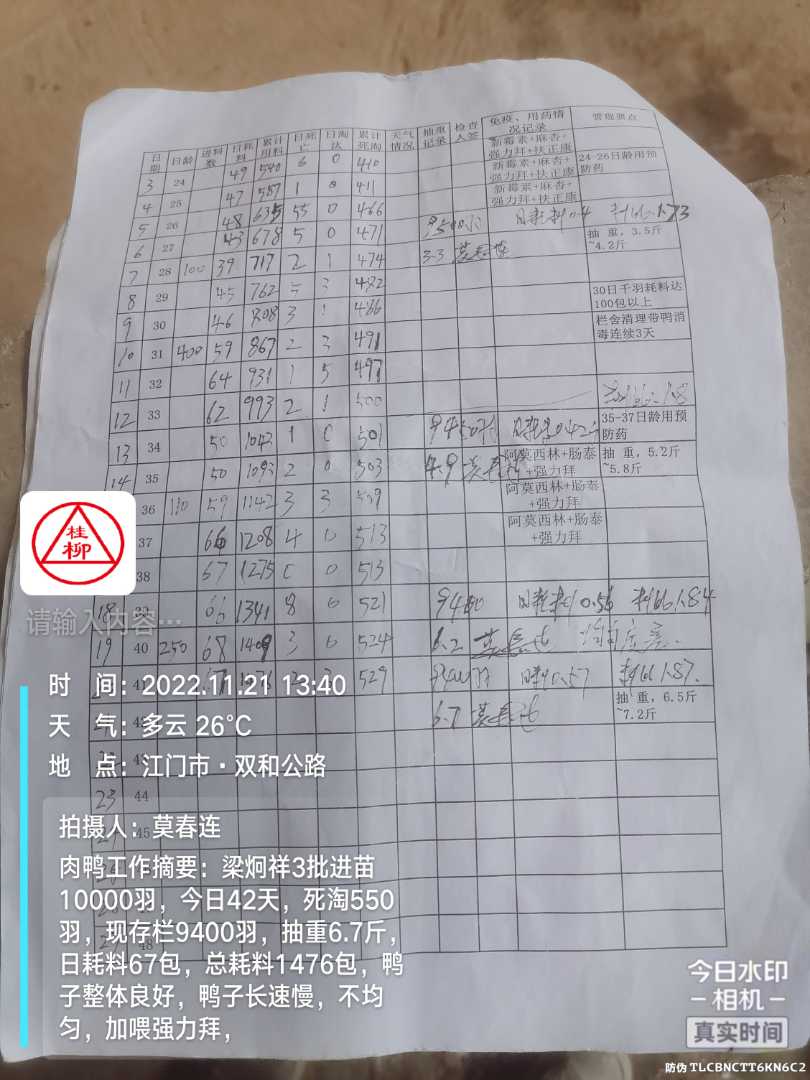 日期 日龄 进料数 日耗料 累计用料 日死亡 日淘汰 累计死淘 天气情况 抽重记录 检查人签 免疫、用药情况记录 管理要点
3 24 49 540 6 0 410 新霉素+麻杏+强力拜+扶正康 24-26日龄用预防药
4 25 47 587 1 0 411 新霉素+麻杏+强力拜+扶正康
5 26 48 635 55 0 466 新霉素+麻杏+强力拜+扶正康
6 27 43 678 5 0 471 9500羽 日耗料0.4 料比1.73
7 28 100 39 717 2 1 474 3.3 莫春连 抽重,3.5斤~4.2斤
8 29 45 762 5 3 482
9 30 46 808 3 1 486 30日千羽耗料达100包以上
10 31 400 59 867 2 3 491 栏舍清理带鸭消毒连续3天
11 32 64 931 1 5 497
12 33 62 993 2 1 500 1.8
13 34 50 1043 1 0 501 9450羽 日耗料0.42 35-37日龄用预防药
14 35 50 1093 2 0 503 4.9 莫春连 阿莫西林+肠泰+强力拜 抽重,5.2斤~5.8斤
36 110 59 1142 3 3 509 阿莫西林+肠泰+强力拜
37 66 1208 4 0 513 阿莫西林+肠泰+强力拜
38 67 1275 0 0 513
18 39 66 1341 8 0 521 9400 日耗料0.56 料比1.84
19 40 250 68 1409 3 0 524 6.2 莫春连
67 1476 529 9400羽 日耗料0.57 料比1.87
6.7 莫春连 抽重,6.5斤~7.2斤
43
23 44
45
48
桂柳
请输入内容…
时 间:2022.11.21 13:40
天 气:多云 26°C
地 点:江门市·双和公路
拍摄人:莫春连
肉鸭工作摘要:梁炯祥3批进苗
10000羽,今日42天,死淘550
羽,现存栏9400羽,抽重6.7斤,
日耗料67包,总耗料1476包,鸭
子整体良好,鸭子长速慢,不均
匀,加喂强力拜,
今日水印
相机
真实时间
防伪 TLCBNCTT6KN6C2